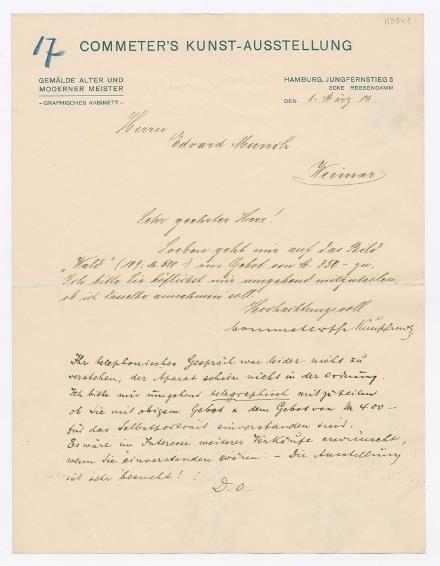 K3841
17
COMMETER'S KUNST-AUSSTELLUNG
GEMÄLDE ALTER UND
MODERNER MEISTER
- GRAPHISCHES KABINETT -
HAMBURG, JUNGFERNSTIEG 5
ECKE REESENDAMM
DEN 1. März 06
Herrn
Edvard Munch
Weimar
Sehr geehrter Herr!
Soeben geht mir auf das Bild
„Wald" (109: M 500) ein Gebot von M. 350 - zu.
Ich bitte Sie höflichst mir umgehend mitzuteilen,
ob ich dasselbe annehmen soll.
Hochachtungsvoll
Commetersche Kunsthandlg
Ihr telephonisches Gespräch war leider nicht zu
verstehen, der Aparat schien nicht in der Ordnung.
Ich bitte mir umgehend telegraphisch mitzuteilen
ob Sie mit obigem Gebot & dem Gebot von M 400 -
für das Selbstportrait einverstanden sind.
Es wäre im Interesse weiterer Verkäufe erwünscht,
wenn Sie einverstanden wären: - Die Ausstellung
ist sehr besucht!
D. O.